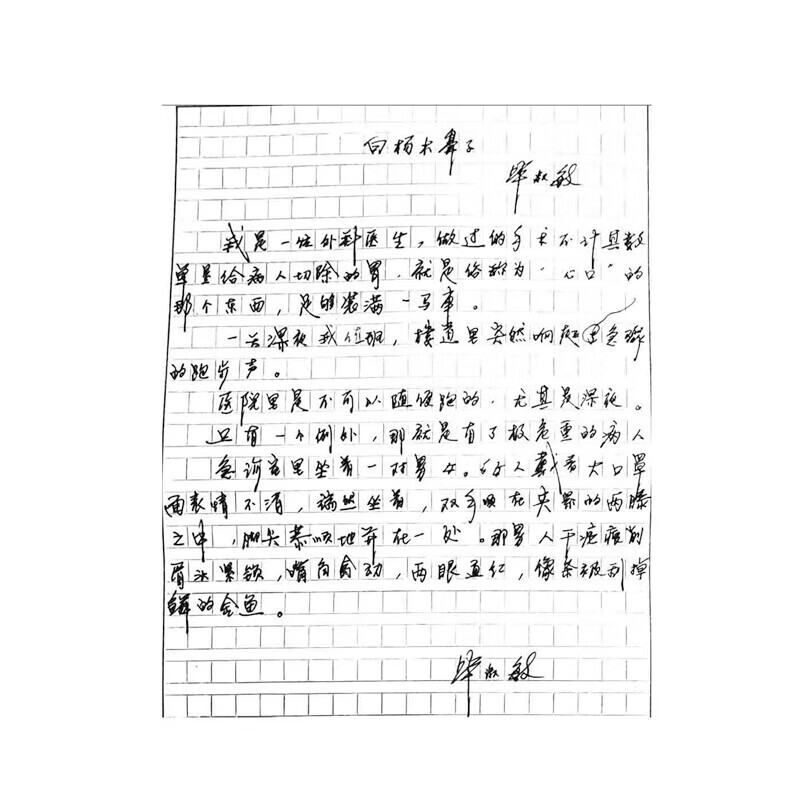 白杨木鼻子
毕淑敏
我是一位外科医生，做过的手术不计其数
单是给病人切除的胃，就是俗称为“心口”的
那个东西，足够装满一马车。
一天深夜我值班，楼道里突然响起急骤
的跑步声。
医院里是不可以随便跑的，尤其是深夜。
只有一个例外，那就是有了极危重的病人
急诊室里坐着一对男女。女人戴着大口罩
面表情不清，端然坐着，双手顺在夹紧的两膝
之中，脚尖恭顺地并在一处。那男人干疤瘦削
眉头紧锁，嘴角翕动，两眼通红，像条被刮掉
鳞的金鱼。
毕淑敏